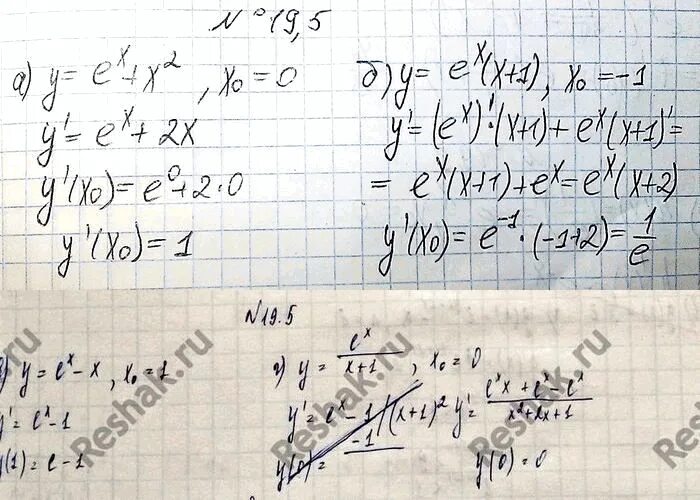 № 19,5
а) y = e^x + x^2, x₀ = 0
y' = e^x + 2x
y'(x₀) = e^0 + 2·0
y'(x₀) = 1
б) y = e^x(x+1), x₀ = -1
y' = (e^x)'·(x+1) + e^x(x+1)' =
= e^x(x+1) + e^x = e^x(x+2)
y'(x₀) = e^-1·(-1+2) = 1/e
№19.5
y = e^x - x, x₀ = 1
y' = e^x - 1
y(1) = e - 1
г) y = e^x/(x+1), x₀ = 0
y' = e^x - 1 /(x+1)^2 y' = (e^x x + e^x - e^x)/(x^2+2x+1)
y(0) = -1
y(0) = 0
Reshak.ru
Reshak.ru
Reshak.ru